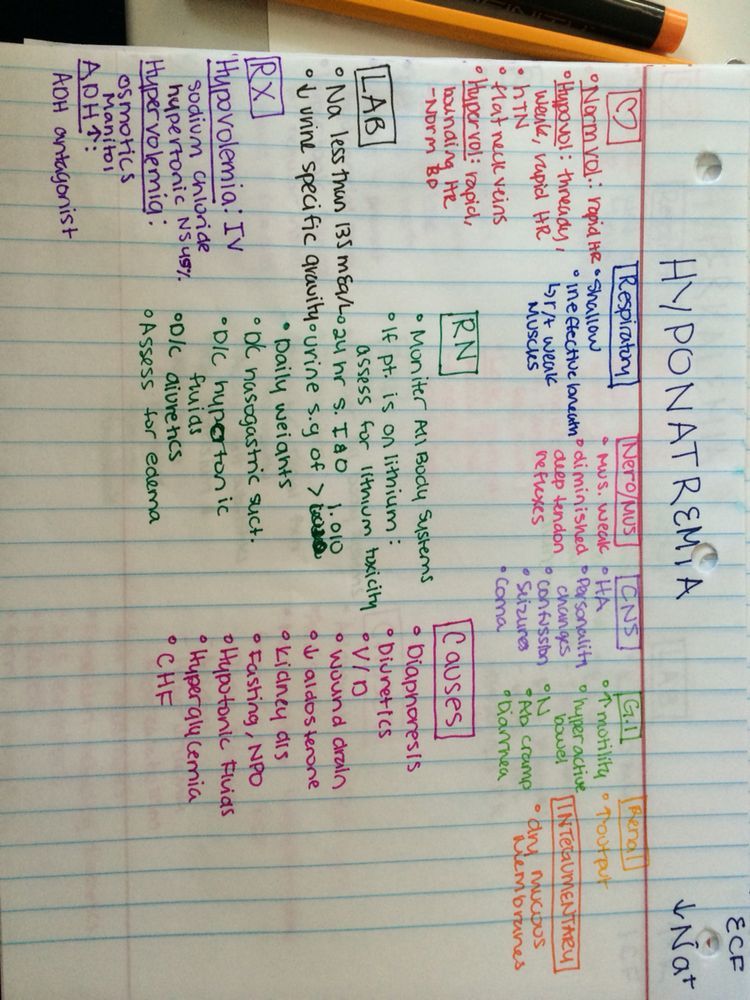 HYPONATREMIA
ECF
↓Na+
♡
• Norm vol.: rapid HR
• Hypovol: thready,
weak, rapid HR
• hTN
• flat neck veins
• Hypervol: rapid,
bounding HR
-Norm BD
Respiratory
• Shallow
• ineffective breath
↳ r/t weak
Muscles
Nero/Mus
• Mus. weak
• diminished
deep tendon
reflexes
CNS
• HA
• Personality
changes
• confussion
• Seizures
• Coma
G.I
• ↑ motility
• hyper active
bowel
• N
• Ab cramp
• Diarrhea
Renal
• ↑ output
INTEGUMENTARY
• dry mucous
Membranes
LAB
• Na less than 135 mEq/L
• ↓ urine specific gravity
RX
Hypovolemia: IV
sodium chloride
hypertonic NS 45%
Hypervolemia:
osmotics
Manitol
ADH↑:
ADH antagonist
RN
• Moniter All Body Systems
• If pt. is on lithium:
assess for lithium toxicity
• 24 hr s. I&O
• urine s.g of > 1.010
• Daily weights
• DC nasogastric suct.
• D/c hypotonic
fluids
• D/c diuretics
• Assess for edema
Causes
• Diaphoresis
• Diuretics
• V/D
• wound drain
• ↓ aldosterone
• Kidney dis
• Fasting, NPO
• Hypotonic Fluids
• Hyperglycemia
• CHF